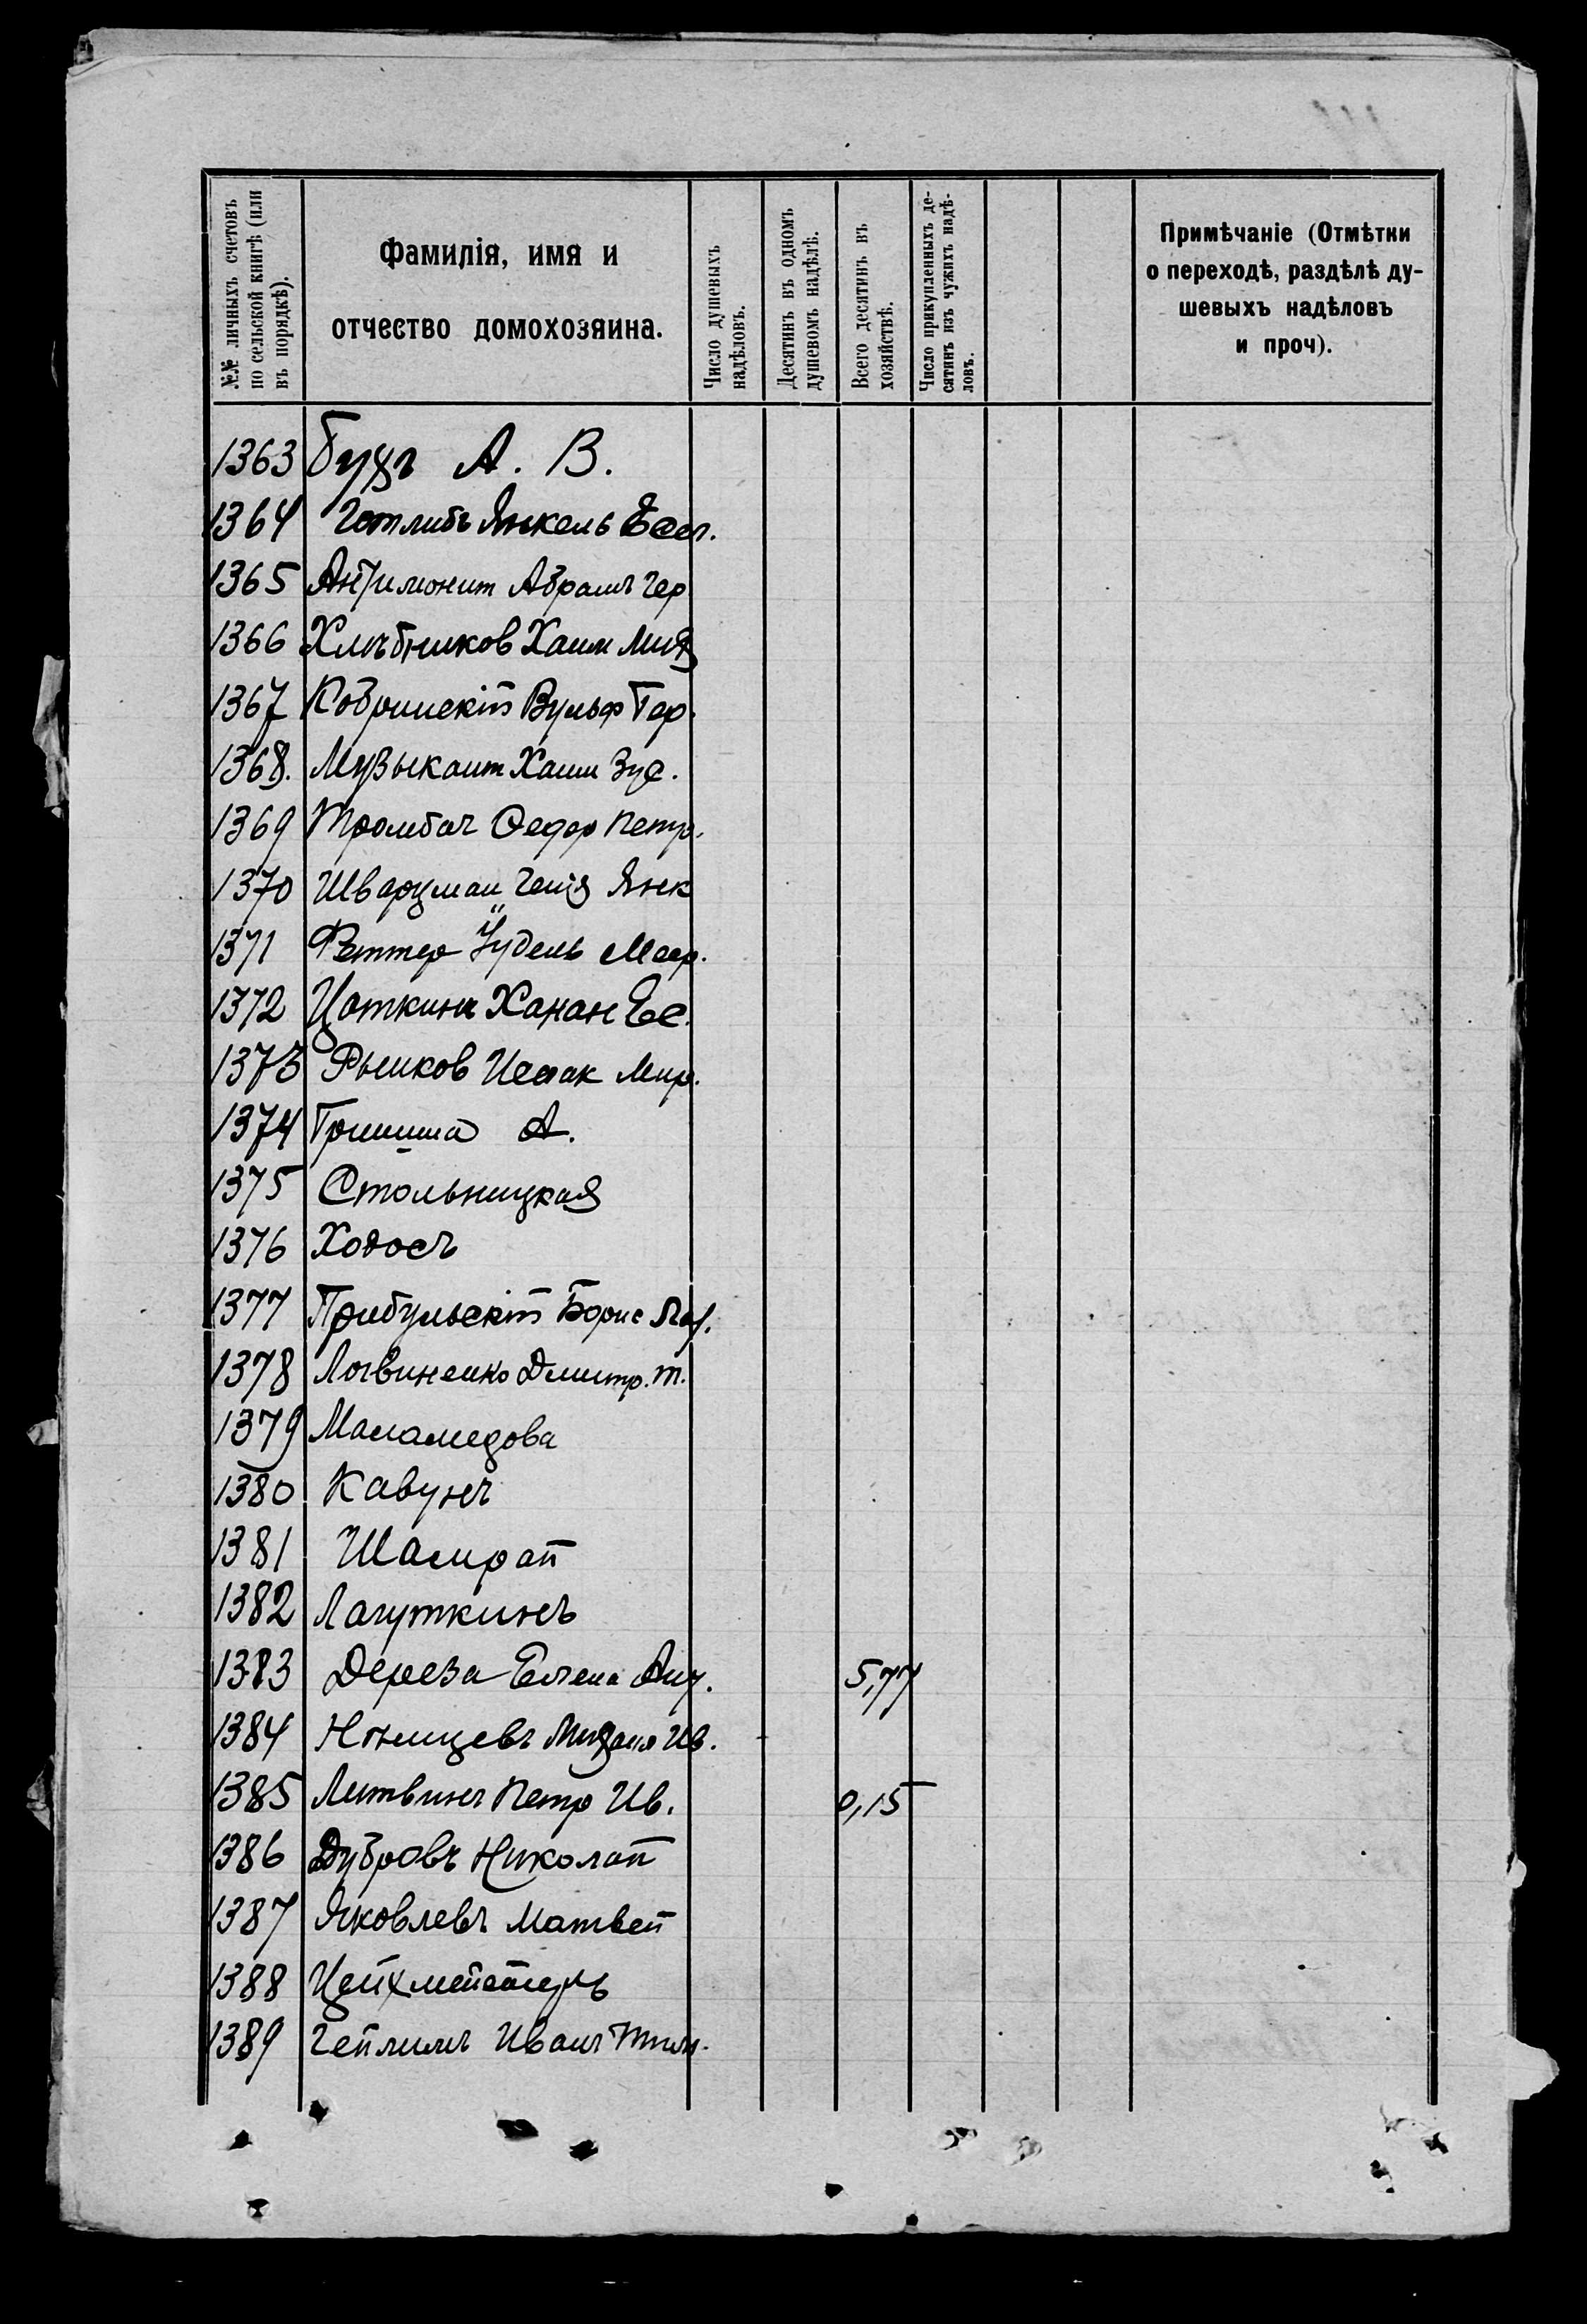 №№ личныхъ счетовъ
по сельской книгѣ (или
въ порядкѣ).
Фамилія, имя и
отчество домохозяина.
Число душевыхъ
надѣловъ.
Десятинъ въ одномъ
душевомъ надѣлѣ.
Всего десятинъ въ
хозяйствѣ.
Число прикупленныхъ де-
сятинъ изъ чужихъ надѣ-
ловъ.
Примѣчаніе (Отмѣтки
о переходѣ, раздѣлѣ ду-
шевыхъ надѣловъ
и проч).
1363 А. В.
1364 Готлибъ Янкель
1365 Абрамъ Гер
1366 Хлѣбников Хаим
1367 Кобринскій Вульф Гер.
1368. Музыкант Хаим Зус.
1369 Тромбач Федор Петр.
1370 Шварцман Янк
1371 Феттер Иудель Меер.
1372 Цоткинъ Ханан Ес.
1373 Рыжков Исаак Мир.
1374 А.
1375 Стольницкая
1376 Ходосъ
1377 Прибульскій Борис Лаз.
1378 Логвиненко Дмитр. Т.
1379 Маламедова
1380 Кавунъ
1381 Шамрай
1382 Лагуткинъ
1383 Дереза Елена 5,77
1384 Нѣмцевъ Ив.
1385 Литвинъ Петр Ив. 0,15
1386 Дубровъ Николай
1387 Яковлевъ Матвей
1388 Цейхмейстеръ
1389 Иванъ Тим.